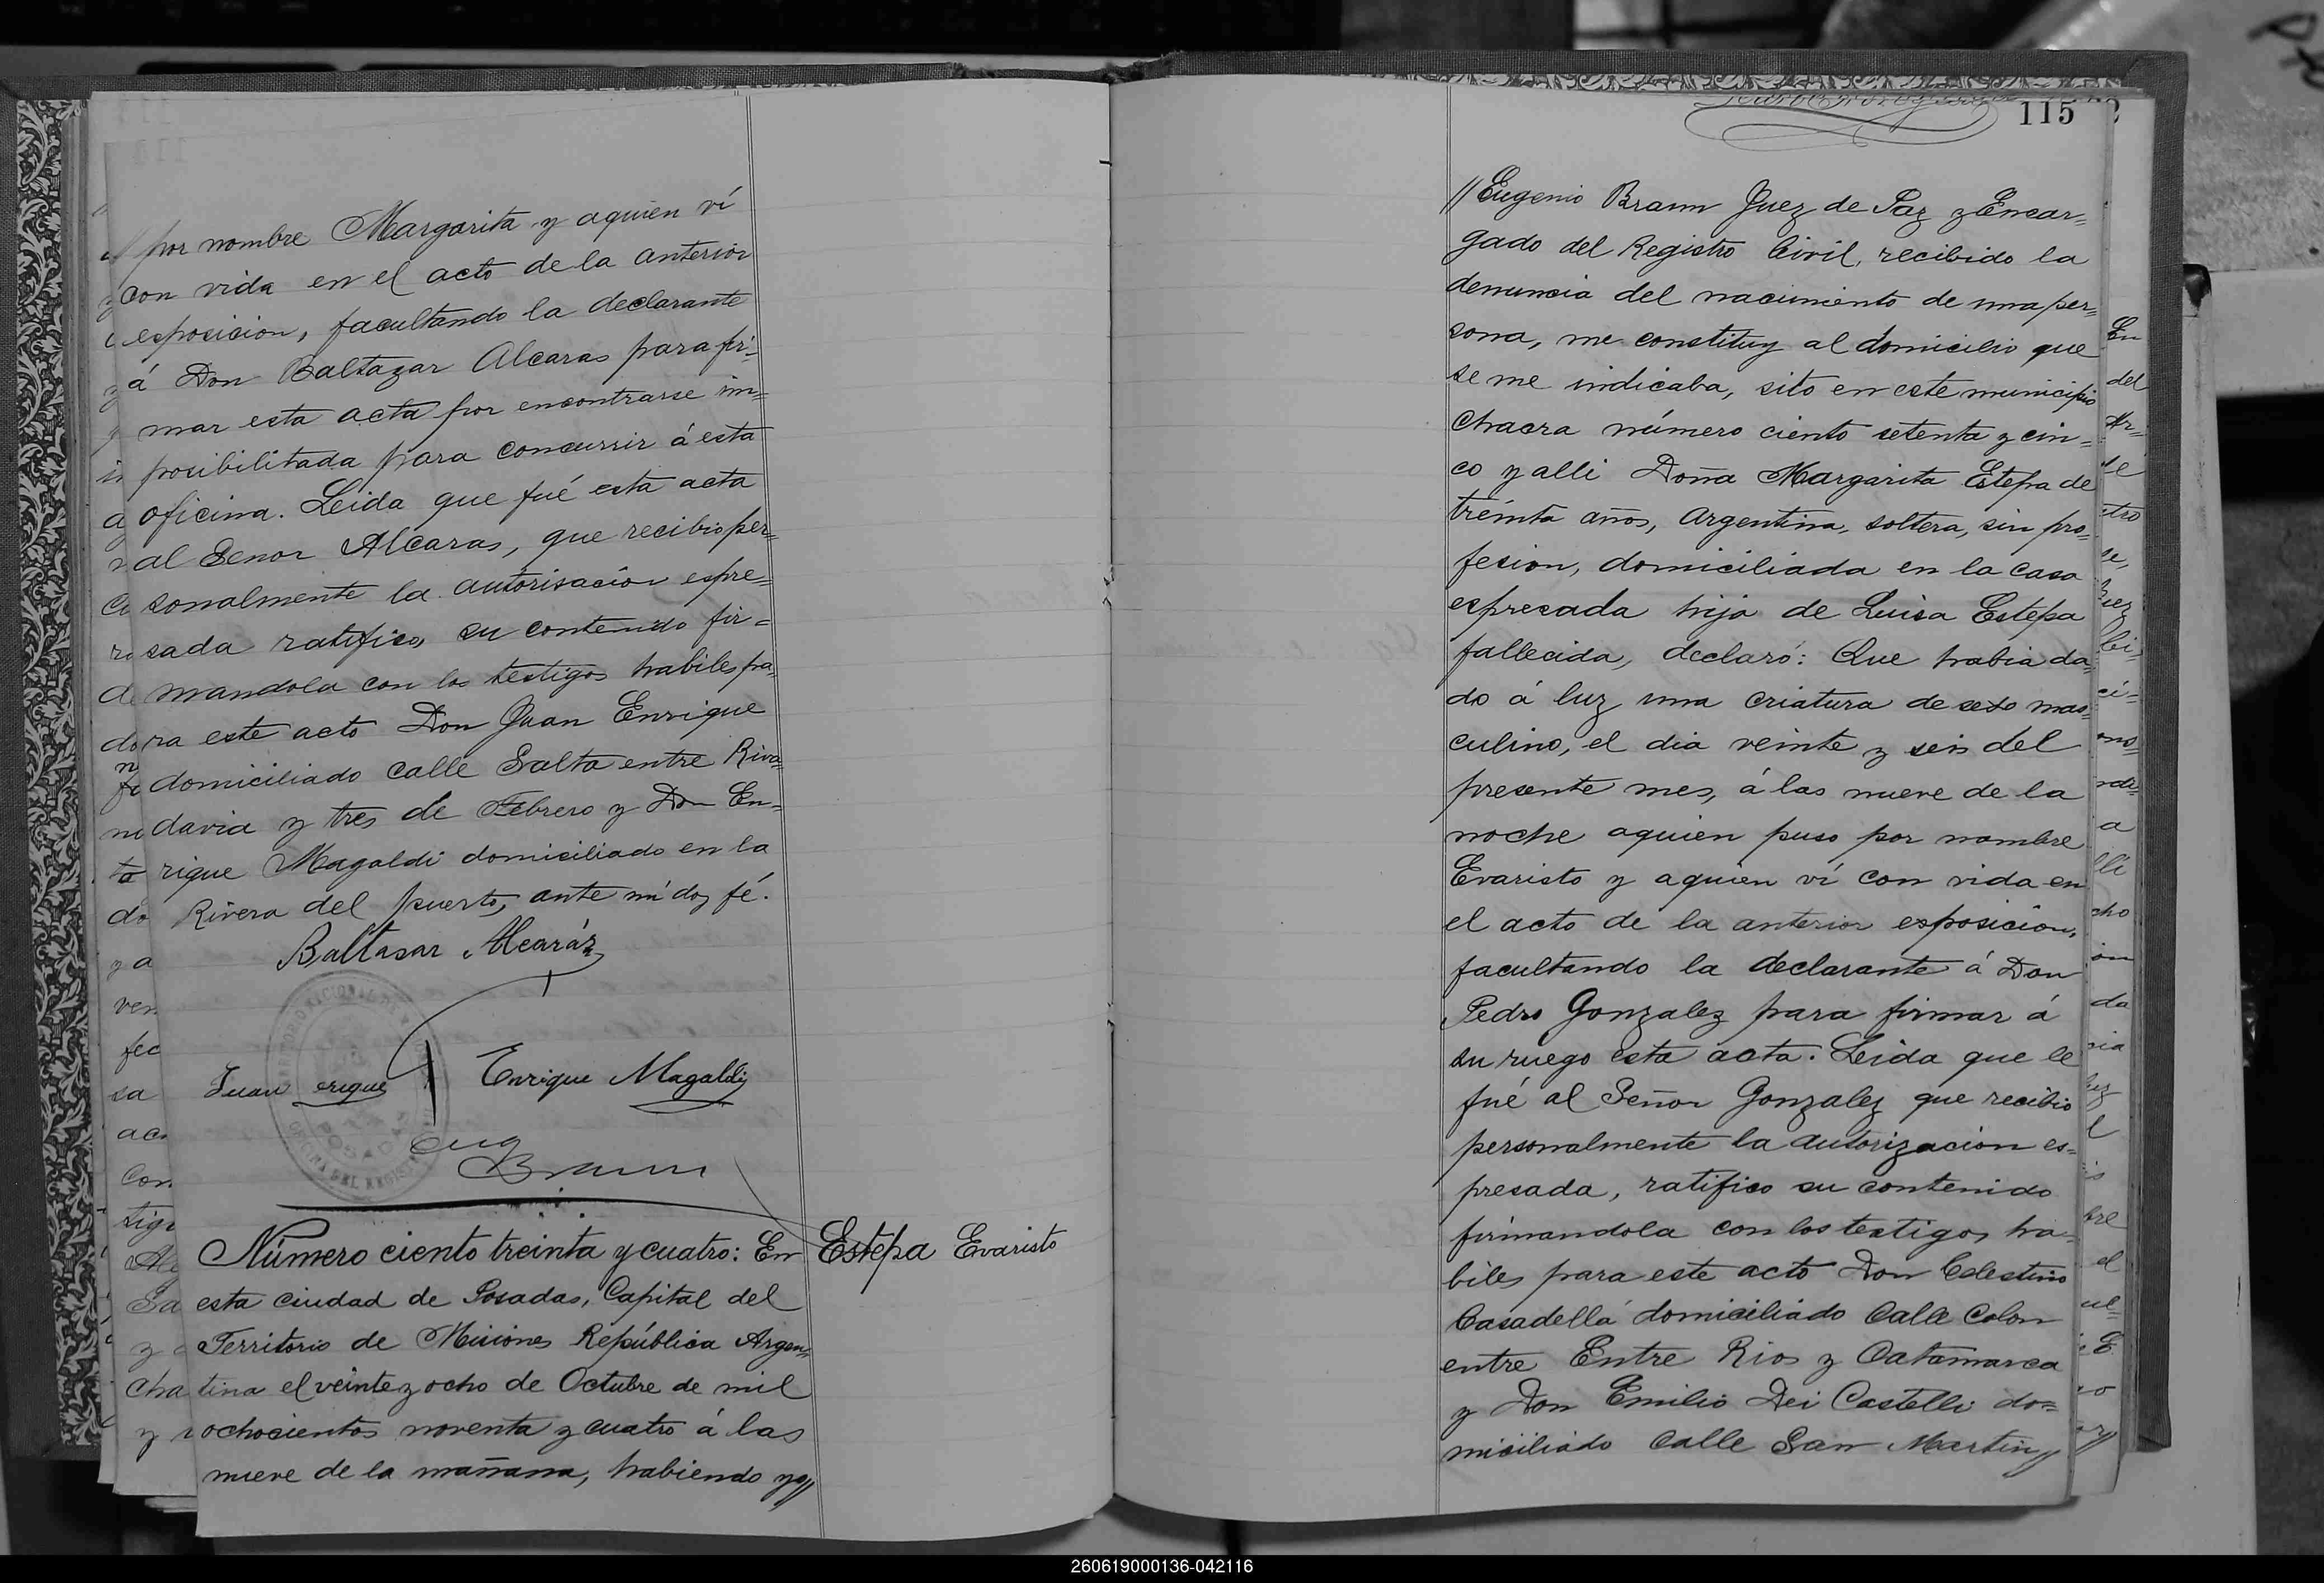 // por nombre Margarita y aquien ví
con vida en el acto de la anterior
esposicion, facultando la declarante
á Don Baltazar Alcaras para fir=
mar esta acta por encontrarse im=
posibilitada para concurrir á esta
oficina. Leida que fué esta acta
al Senor Alcaras, que recibio per=
sonalmente la autorisacion espre=
sada ratifico, su contenido fir=
mandola con los testigos habiles pa=
ra este acto Don Juan Enrique
domiciliado calle Salta entre Riva=
davia y tres de Febrero y Don En=
rique Magaldi domiciliado en la
Rivera del puerto, ante mi doy fé.
Baltasar Alcaráz
Juan erique
Enrique Magaldi
Eug
Braun
Número ciento treinta y cuatro: En
Estepa Evaristo
esta ciudad de Posadas, Capital del
Territorio de Misiones República Argen=
tina el veinte y ocho de Octubre de mil
ochocientos noventa y cuatro á las
nueve de la mañana, habiendo yo//
115
//Eugenio Braun Juez de Paz y Encar=
gado del Registro Civil, recibido la
denuncia del nacimiento de una per=
sona, me constituy al domicilio que
se me indicaba, sito en este municipio
Chacra número ciento setenta y cin=
co y alli Doña Margarita Estepa de
treinta años, Argentina, soltera, sin pro=
fesion, domiciliada en la casa
espresada hija de Luisa Estepa
fallecida, declaró: Que habia da=
do á luz una criatura de sexo mas=
culino, el dia veinte y seis del
presente mes, á las nueve de la
noche aquien puso por nombre
Evaristo y aquien ví con vida en
el acto de la anterior esposicion,
facultando la declarante á Don
Pedro Gonzalez para firmar á
su ruego esta acta. Leida que le
fué al Señor Gonzalez que recibio
personalmente la autorizacion es=
presada, ratifico su contenido
firmandola con los testigos ha=
biles para este acto Don Celestino
Casadellá domiciliado Calle Colon
entre Entre Rios y Catamarca
y Don Emilio Dei Castelli do=
miciliado Calle San Martin//
260619000136-042116